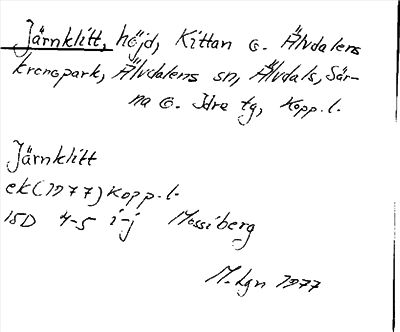 Järnklitt, höjd, Kittan o. Älvdalens
kronopark, Älvdalens sn, Älvdals, Sär-
na o. Idre tg, Kopp. l.
Järnklitt
ek (1977) Kopp. l.
15D 4-5 i-j Mossiberg
M. Lgn 1977